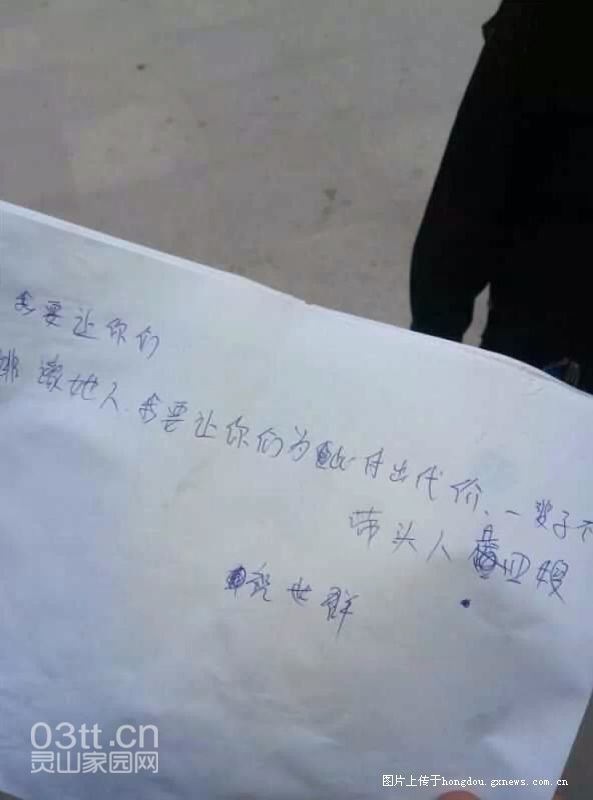 我要让你们
排 地人.我要让你们为此付出代价、一辈子不
带头人 亚嫂
世群
03tt.cn
灵山家园网
图片上传于hongdou.gxnews.com.cn